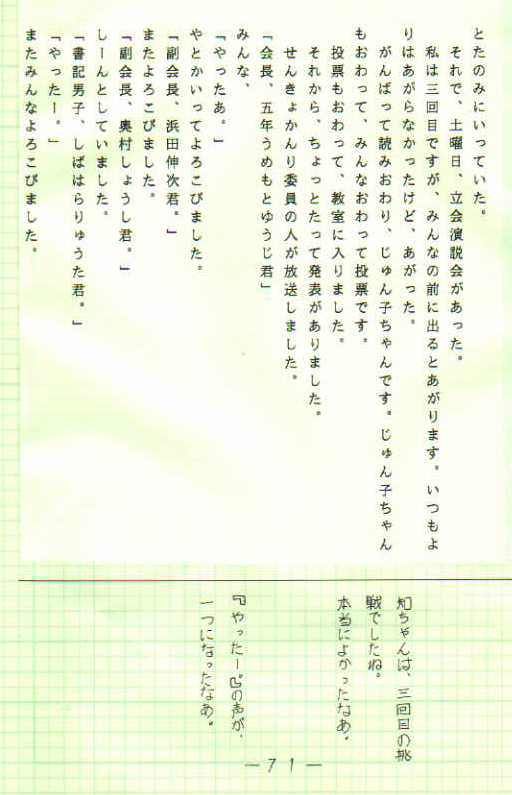 とたのみにいっていた。
それで、土曜日、立会演説会があった。
私は三回目ですが、みんなの前に出るとあがります。いつもよ
りはあがらなかったけど、あがった。
がんばって読みおわり、じゅん子ちゃんです。じゅん子ちゃん
もおわって、みんなおわって投票です。
投票もおわって、教室に入りました。
それから、ちょっとたって発表がありました。
せんきょかんり委員の人が放送しました。
「会長、五年うめもとゆうじ君」
みんな、
「やったあ。」
やとかいってよろこびました。
「副会長、浜田伸次君。」
またよろこびました。
「副会長、奥村しょうし君。」
しーんとしていました。
「書記男子、しばはらりゅうた君。」
「やったー。」
またみんなよろこびました。
知ちゃんは、三回目の挑
戦でしたね。
本当によかったなあ。
『やったー』の声が、
一つになったなあ。
—71—